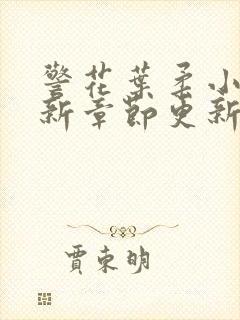 警花葉柔小
新章節更新
賈東明